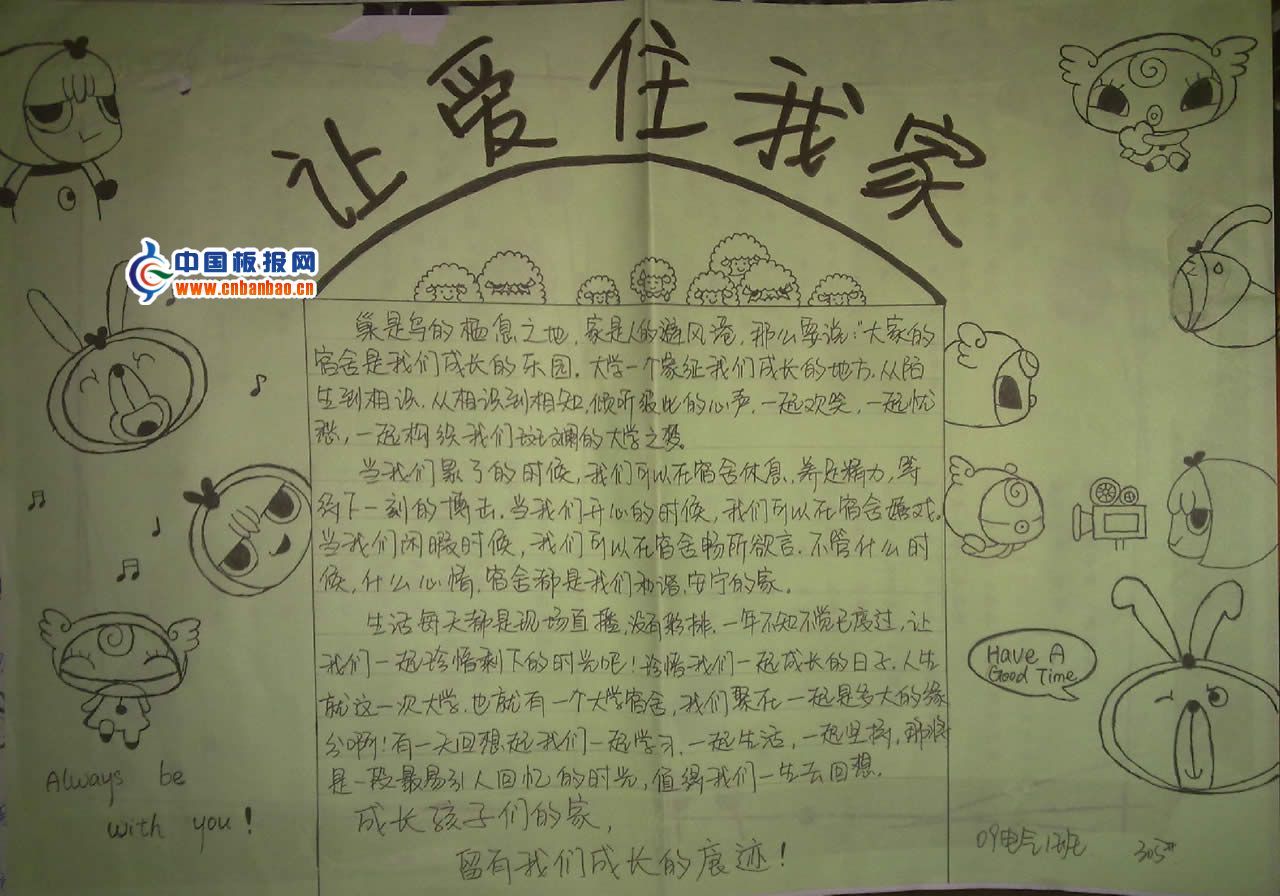 让爱住我家
中国板报网
www.cnbanbao.cn
巢是鸟的栖息之地，家是人的避风港，那么要说："大家的
宿舍是我们成长的乐园。大学一个象征我们成长的地方，从陌
生到相识，从相识到相知，倾听彼此的心声，一起欢笑，一起忧
愁，一起构织我们斑斓的大学之梦。
当我们累了的时候，我们可以在宿舍休息，养足精力，等
待下一刻的搏击。当我们开心的时候，我们可以在宿舍嬉戏。
当我们闲暇时候，我们可以在宿舍畅所欲言。不管什么时
候，什么心情，宿舍都是我们和谐、安宁的家。
生活每天都是现场直播，没有彩排，一年不知不觉已度过，让
我们一起珍惜剩下的时光吧！珍惜我们一起成长的日子，人生
就这一次大学，也就有一个大学宿舍，我们聚在一起是多大的缘
分啊！有一天回想起我们一起学习，一起生活，一起坚持，那将
是一段最易引人回忆的时光，值得我们一生去回想。
成长孩子们的家，
留有我们成长的痕迹！
Have A
Good Time
Always be
with you!
09电气1班
305#